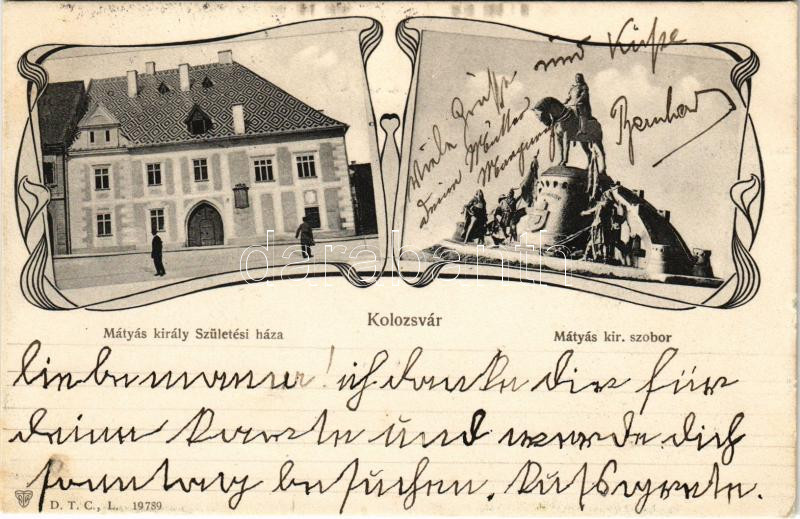 und Küsse
Viele Grüße
deiner Mutter
Bernhard
darabanth.com
Kolozsvár
Mátyás király Születési háza
Mátyás kir. szobor
liebe mama! ich danke dir für
deine karte und werde dich
sonntag besuchen. Kuss grete.
D. T. C., L. 19789